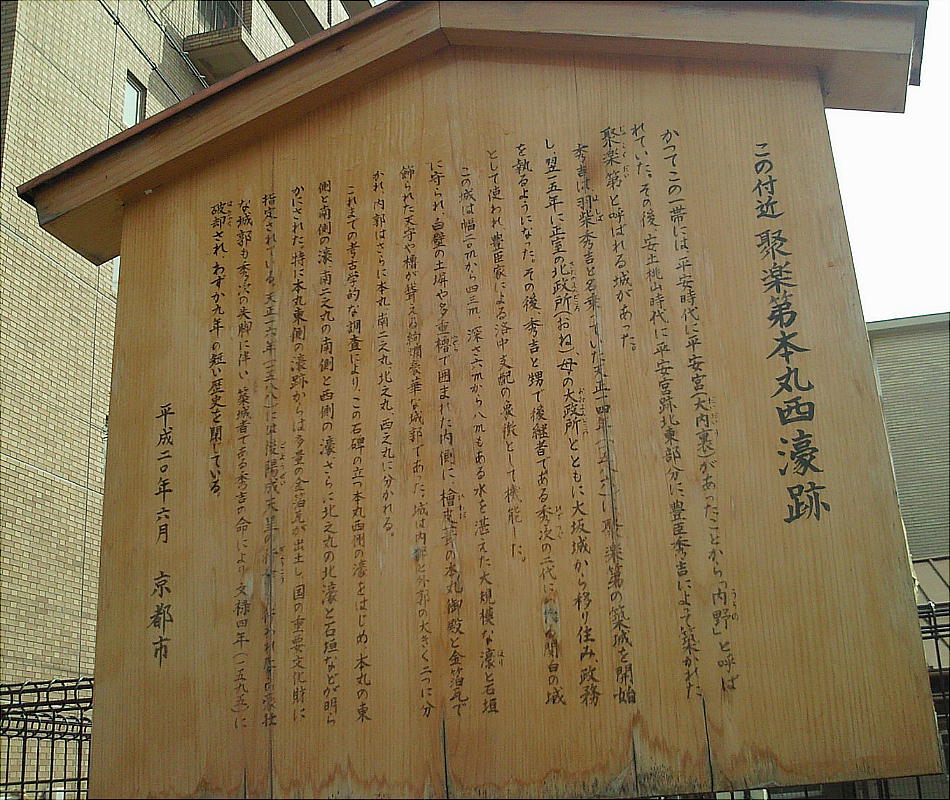 この付近 聚楽第本丸西濠跡
かつてこの一帯には平安時代に平安宮(大内裏)があったことから「内野」と呼ば
れていた。その後、安土桃山時代に平安宮跡北東部分に、豊臣秀吉によって築かれた
聚楽第と呼ばれる城があった。
秀吉は羽柴秀吉と名乗っていた天正一四年(一五八六)に聚楽第の築城を開始
し、翌一五年に正室の北政所(おね)、母の大政所とともに大坂城から移り住み政務
を執るようになった。その後、秀吉と甥で後継者である秀次の二代に 関白の城
として使われ、豊臣家による洛中支配の象徴として機能した。
この城は幅二〇mから四三m、深さ六mから八mもある水を湛えた大規模な濠と石垣
に守られ、白壁の土塀や多重櫓で囲まれた内側に、檜皮葺の本丸御殿と金箔瓦で
飾られた天守や櫓が聳える絢爛豪華な城郭であった。城は内郭と外郭の大きく二つに分
かれ、内郭はさらに本丸、南二之丸、北之丸、西之丸に分かれる。
これまでの考古学的な調査により、この石碑の立つ本丸西側の濠をはじめ、本丸の東
側と南側の濠、南二之丸の南側と西側の濠、さらに北之丸の北濠と石垣などが明ら
かにされた。特に本丸東側の濠跡からは多量の金箔瓦が出土し、国の重要文化財に
指定されている。天正一六年(一五八八)には後陽成天皇の 行われ
な城郭も、秀次の失脚に伴い、築城者である秀吉の命により文禄四年(一五九五)に
破却され、わずか九年の短い歴史を閉じている。
平成二〇年六月 京都市